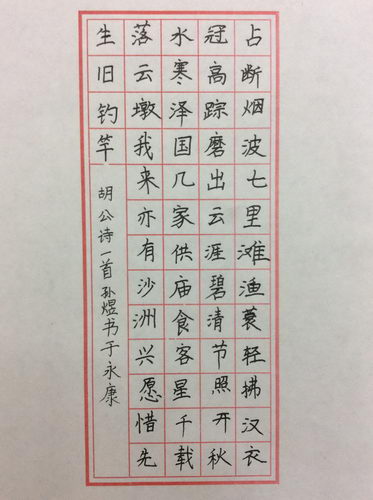 占断烟波七里滩渔蓑轻拂汉衣
冠高踪磨出云涯碧清节照开秋
水寒泽国几家供庙食客星千载
落云墩我来亦有沙洲兴愿惜先
生旧钓竿
胡公诗一首孙煜书于永康